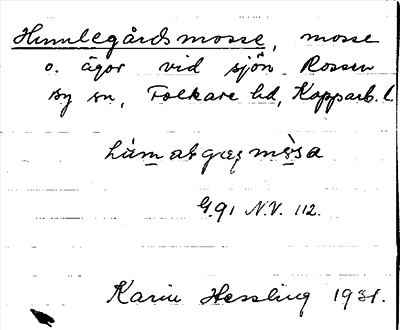 Humlegårdsmosse, mosse
o. ägor vid sjön Rossen
By sn, Folkare hd, Kopparb. l.
G.91 N.V. 112.
Karin Hessling 1931.